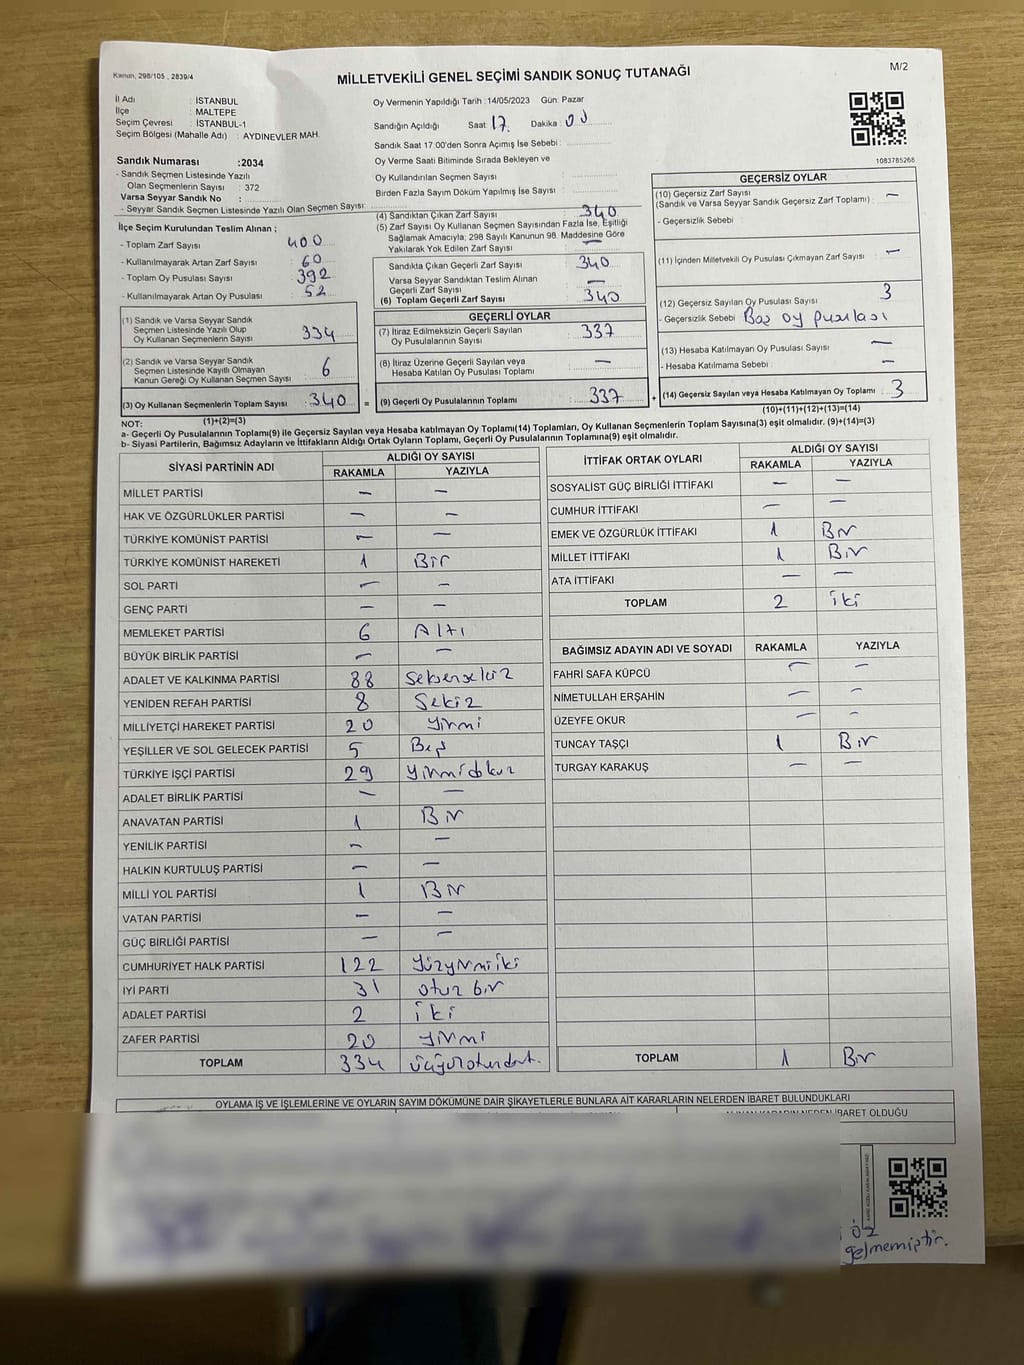 Kanun, 298/105 , 2839/4
MİLLETVEKİLİ GENEL SEÇİMİ SANDIK SONUÇ TUTANAĞI
M/2
İl Adı : İSTANBUL
İlçe : MALTEPE
Seçim Çevresi : İSTANBUL-1
Seçim Bölgesi (Mahalle Adı) : AYDINEVLER MAH.
Oy Vermenin Yapıldığı Tarih :14/05/2023 Gün: Pazar
Sandığın Açıldığı Saat: 17 Dakika: 00
Sandık Saat 17.00'den Sonra Açımış İse Sebebi :
Oy Verme Saati Bitiminde Sırada Bekleyen ve
Oy Kullandırılan Seçmen Sayısı :
Birden Fazla Sayım Döküm Yapılmış İse Sayısı :
1083785268
Sandık Numarası :2034
- Sandık Seçmen Listesinde Yazılı
Olan Seçmenlerin Sayısı : 372
Varsa Seyyar Sandık No :
- Seyyar Sandık Seçmen Listesinde Yazılı Olan Seçmen Sayısı :
İlçe Seçim Kurulundan Teslim Alınan ;
- Toplam Zarf Sayısı : 400
- Kullanılmayarak Artan Zarf Sayısı : 60
- Toplam Oy Pusulası Sayısı : 392
- Kullanılmayarak Artan Oy Pusulası : 52
(1) Sandık ve Varsa Seyyar Sandık
Seçmen Listesinde Yazılı Olup
Oy Kullanan Seçmenlerin Sayısı : 334
(2) Sandık ve Varsa Seyyar Sandık
Seçmen Listesinde Kayıtlı Olmayan
Kanun Gereği Oy Kullanan Seçmen Sayısı : 6
(3) Oy Kullanan Seçmenlerin Toplam Sayısı : 340 =
(1)+(2)=(3)
(4) Sandıktan Çıkan Zarf Sayısı : 340
(5) Zarf Sayısı Oy Kullanan Seçmen Sayısından Fazla İse, Eşitliği
Sağlamak Amacıyla, 298 Sayılı Kanunun 98. Maddesine Göre
Yakılarak Yok Edilen Zarf Sayısı : —
Sandıkta Çıkan Geçerli Zarf Sayısı : 340
Varsa Seyyar Sandıktan Teslim Alınan
Geçerli Zarf Sayısı : —
(6) Toplam Geçerli Zarf Sayısı : 340
GEÇERLİ OYLAR
(7) İtiraz Edilmeksizin Geçerli Sayılan
Oy Pusulalarının Sayısı : 337
(8) İtiraz Üzerine Geçerli Sayılan veya
Hesaba Katılan Oy Pusulası Toplamı : —
(9) Geçerli Oy Pusulalarının Toplamı : 337 +
GEÇERSİZ OYLAR
(10) Geçersiz Zarf Sayısı
(Sandık ve Varsa Seyyar Sandık Geçersiz Zarf Toplamı) : —
- Geçersizlik Sebebi :
(11) İçinden Milletvekili Oy Pusulası Çıkmayan Zarf Sayısı : —
(12) Geçersiz Sayılan Oy Pusulası Sayısı : 3
- Geçersizlik Sebebi : Boş oy pusulası
(13) Hesaba Katılmayan Oy Pusulası Sayısı : —
- Hesaba Katılmama Sebebi : —
(14) Geçersiz Sayılan veya Hesaba Katılmayan Oy Toplamı : 3
(10)+(11)+(12)+(13)=(14)
NOT:
a- Geçerli Oy Pusulalarının Toplamı(9) ile Geçersiz Sayılan veya Hesaba katılmayan Oy Toplamı(14) Toplamları, Oy Kullanan Seçmenlerin Toplam Sayısına(3) eşit olmalıdır. (9)+(14)=(3)
b- Siyasi Partilerin, Bağımsız Adayların ve İttifakların Aldığı Ortak Oyların Toplamı, Geçerli Oy Pusulalarının Toplamına(9) eşit olmalıdır.
SİYASİ PARTİNİN ADI ALDIĞI OY SAYISI
RAKAMLA YAZIYLA
MİLLET PARTİSİ — —
HAK VE ÖZGÜRLÜKLER PARTİSİ — —
TÜRKİYE KOMÜNİST PARTİSİ — —
TÜRKİYE KOMÜNİST HAREKETİ 1 Bir
SOL PARTİ — —
GENÇ PARTİ — —
MEMLEKET PARTİSİ 6 Altı
BÜYÜK BİRLİK PARTİSİ — —
ADALET VE KALKINMA PARTİSİ 88 Seksensekiz
YENİDEN REFAH PARTİSİ 8 Sekiz
MİLLİYETÇİ HAREKET PARTİSİ 20 Yirmi
YEŞİLLER VE SOL GELECEK PARTİSİ 5 Beş
TÜRKİYE İŞÇİ PARTİSİ 29 Yirmidokuz
ADALET BİRLİK PARTİSİ — —
ANAVATAN PARTİSİ 1 Bir
YENİLİK PARTİSİ — —
HALKIN KURTULUŞ PARTİSİ — —
MİLLİ YOL PARTİSİ 1 Bir
VATAN PARTİSİ — —
GÜÇ BİRLİĞİ PARTİSİ — —
CUMHURİYET HALK PARTİSİ 122 Yüzyirmiiki
İYİ PARTİ 31 otuz bir
ADALET PARTİSİ 2 iki
ZAFER PARTİSİ 20 Yirmi
TOPLAM 334 üçyüzotuzdört.
İTTİFAK ORTAK OYLARI ALDIĞI OY SAYISI
RAKAMLA YAZIYLA
SOSYALİST GÜÇ BİRLİĞİ İTTİFAKI — —
CUMHUR İTTİFAKI — —
EMEK VE ÖZGÜRLÜK İTTİFAKI 1 Bir
MİLLET İTTİFAKI 1 Bir
ATA İTTİFAKI — —
TOPLAM 2 iki
BAĞIMSIZ ADAYIN ADI VE SOYADI RAKAMLA YAZIYLA
FAHRİ SAFA KÜPCÜ — —
NİMETULLAH ERŞAHİN — —
ÜZEYFE OKUR — —
TUNCAY TAŞÇI 1 Bir
TURGAY KARAKUŞ — —
TOPLAM 1 Bir
OYLAMA İŞ VE İŞLEMLERİNE VE OYLARIN SAYIM DÖKÜMÜNE DAİR ŞİKAYETLERLE BUNLARA AİT KARARLARIN NELERDEN İBARET BULUNDUKLARI
İBARET OLDUĞU
gelmemiştir.